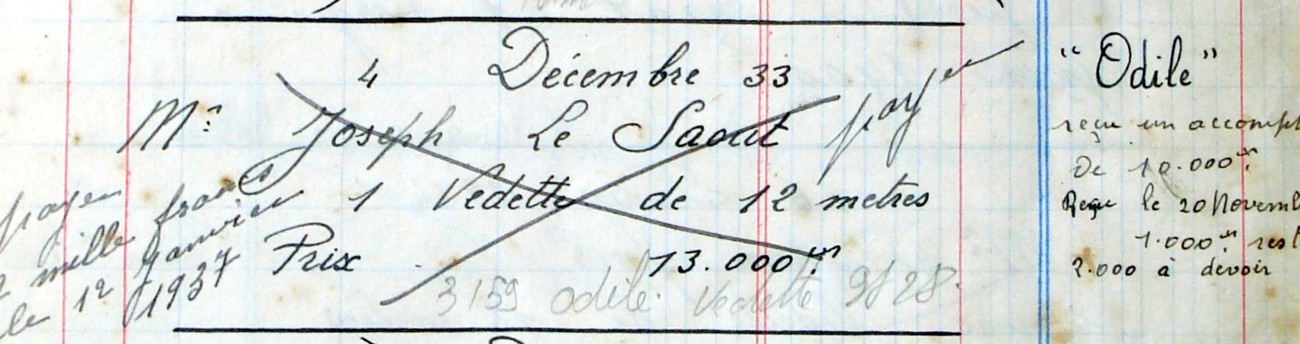 4 Décembre 33
Mr Joseph Le Saout payé
1 Vedette de 12 metres
Prix 13.000 frs
3159 Odile Vedette
payer
mille francs
le 1er Janvier
1937
"Odile"
reçu un accompt
de 10.000 frs
Reçu le 20 Novemb
1.000 frs rest
2.000 à devoir